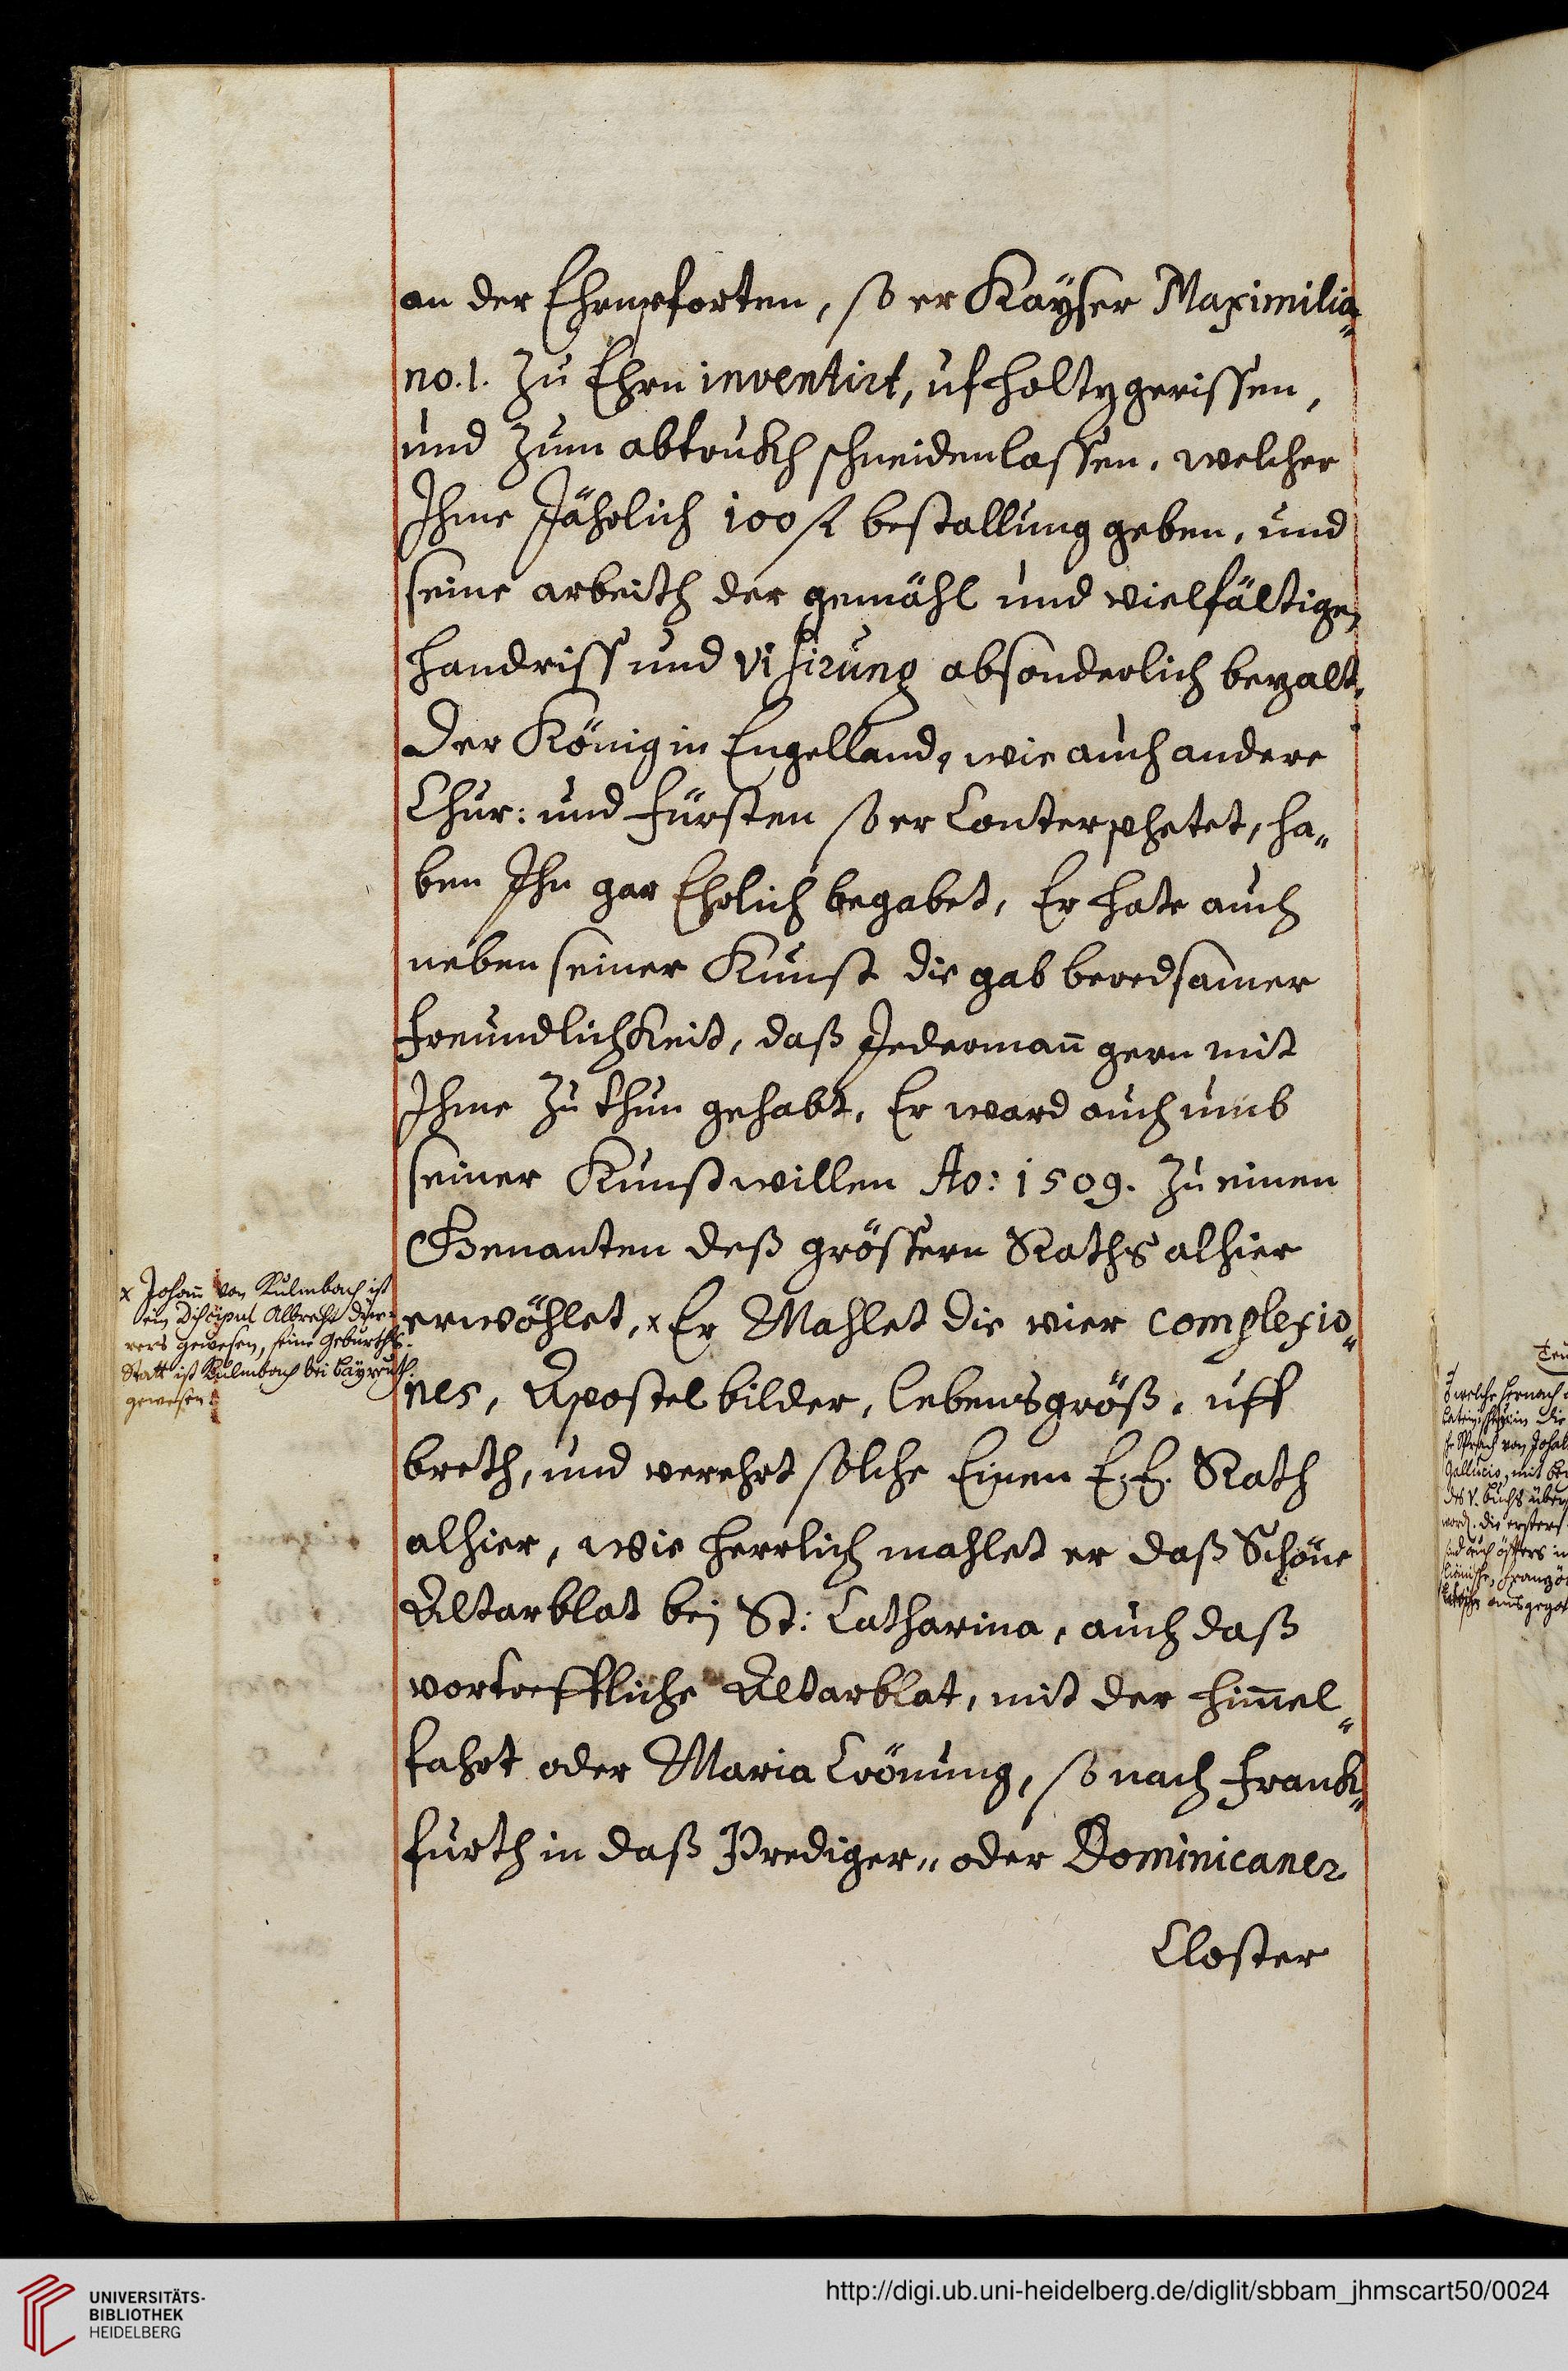 an der Ehrnpforten, so er Kaÿser Maximilia„
no. 1. zu Ehrn inventirt, uf holtz gerissen,
und zum abtrukh schneiden lassen, welcher
Ihme Jährlich 100 fl bestallung geben, und
seine arbeith der gemähl und vielfältigen
handriss und visirung absonderlich bezalt,
Der König in Engelland, wie auch andere
Chur: und Fürsten so er Conterphetet, ha„
ben Ihn gar Ehrlich begabet, Er hate auch
neben seiner Kunst die gab beredsamer
freundlichkeit, daß Jedermañ gern mit
Ihme zu thun gehabt, Er ward auch umb
seiner Kunst willen Ao: 1509. zu einen
Genanten deß grössern Raths alhier
erwöhlet, x Er Mahlet die vier complexio„
nes, Apostel bilder, lebensgröß, uff
breth, und verehrt solche Einen E. E. Rath
alhier, wie herrlich mahlet er daß Schöne
Altarblat beij St: Catharina, auch daß
vortreffliche Altarblat, mit der him̃el„
fahrt oder Maria Crönung, so nach Frank„
furth in daß Prediger„ oder Dominicaner
Closter
x Johañ von Kulmbach ist
ein Discipul Albrecht Dür-
rers gewesen, seine Geburths-
Statt ist Kulmbach bei Bayreuth
gewesen.
welche hernach
von Joha
Gallucio, mit
des V. buchs über
word. die ersten
sind auch öffters
UNIVERSITÄTS-
BIBLIOTHEK
HEIDELBERG
http://digi.ub.uni-heidelberg.de/diglit/sbbam_jhmscart50/0024